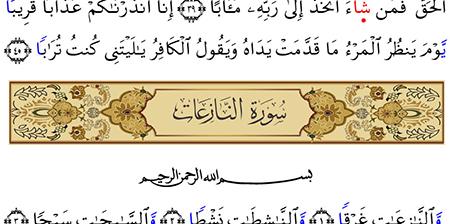 ٱلْحَقُّ فَمَن شَآءَ ٱتَّخَذَ إِلَىٰ رَبِّهِۦ مَـَٔابًا ﴿٣٩﴾ إِنَّآ أَنذَرْنَـٰكُمْ عَذَابًا قَرِيبًا
يَوْمَ يَنظُرُ ٱلْمَرْءُ مَا قَدَّمَتْ يَدَاهُ وَيَقُولُ ٱلْكَافِرُ يَـٰلَيْتَنِى كُنتُ تُرَٰبًۢا ﴿٤٠﴾
سُورَةُ النَّازِعَات
بسم الله الرحمن الرحيم
وَٱلنَّـٰزِعَـٰتِ غَرْقًا ﴿١﴾ وَٱلنَّـٰشِطَـٰتِ نَشْطًا ﴿٢﴾ وَٱلسَّـٰبِحَـٰتِ سَبْحًا ﴿٣﴾